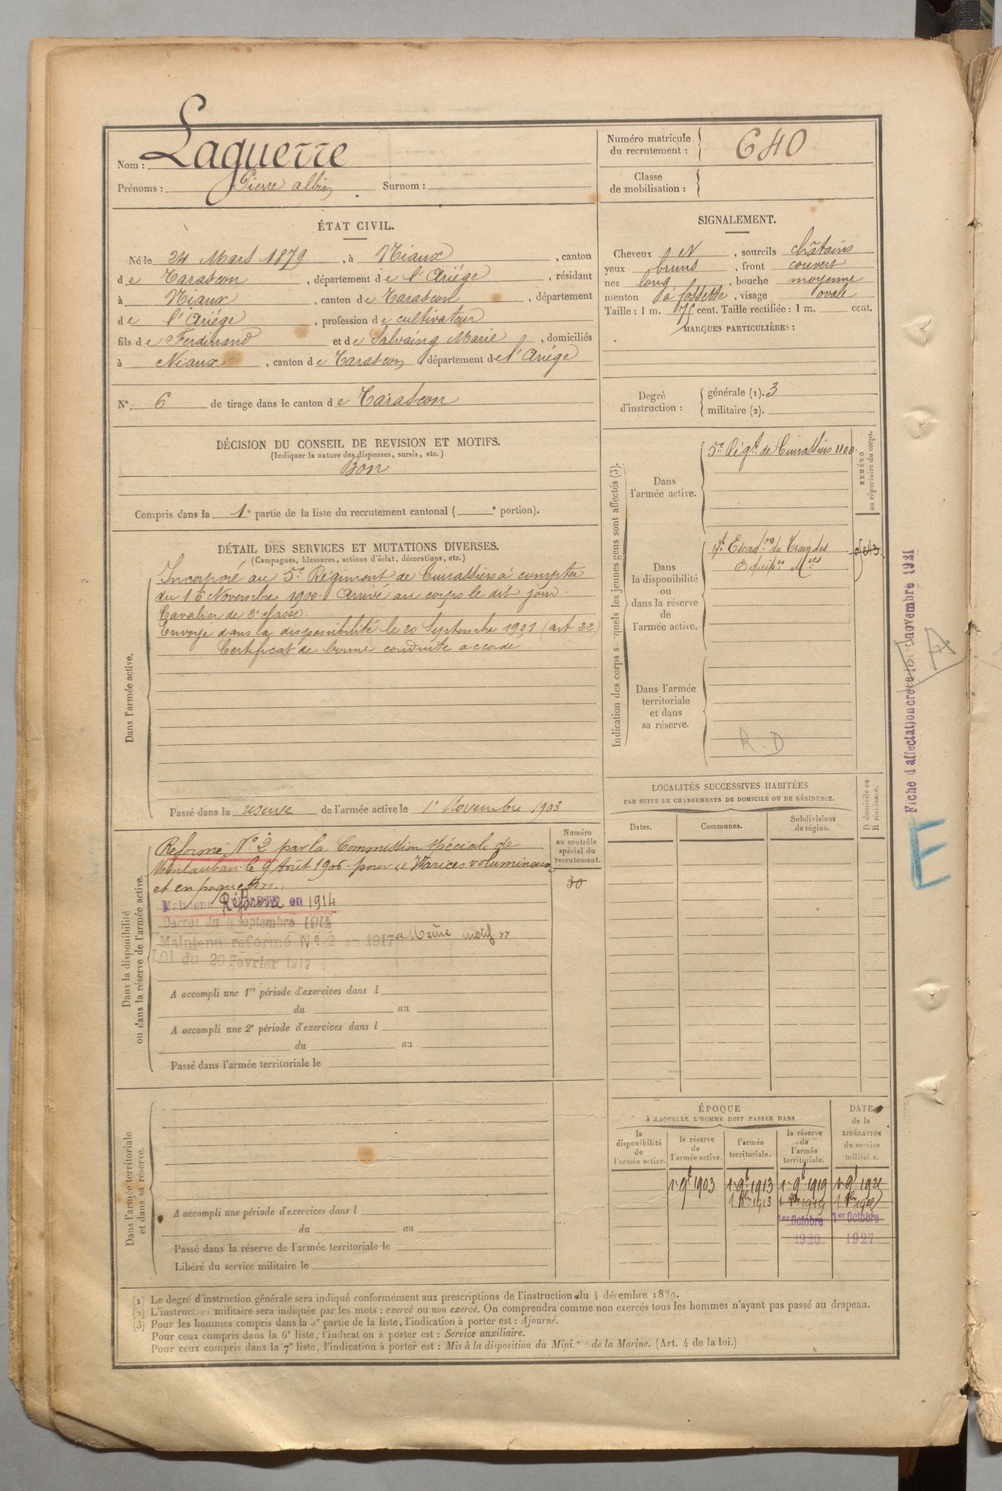 Nom : Laguerre
Prénoms : Pierre albin Surnom :
Numéro matricule du recrutement : 640
Classe de mobilisation :
ÉTAT CIVIL.
Né le 24 Mars 1879, à Niaux, canton
de Tarascon, département de l'Ariége, résidant
à Niaux, canton de Tarascon, département
de l'Ariége, profession de cultivateur
fils de Ferdinand et de Salvaing Marie, domiciliés
à Niaux, canton de Tarascon, département de l'Ariége
N°. 6 de tirage dans le canton de Tarascon
SIGNALEMENT.
Cheveux et, sourcils châtains
yeux bruns, front couvert
nez long, bouche moyenne
menton à fossette, visage ovale
Taille : 1 m. cent. Taille rectifiée : 1 m. cent.
MARQUES PARTICULIÈRES :
Degré d'instruction : générale (1). 3
militaire (2).
DÉCISION DU CONSEIL DE REVISION ET MOTIFS.
(Indiquer la nature des dispenses, sursis, etc.)
Bon
Compris dans la 1e partie de la liste du recrutement cantonal ( e portion).
DÉTAIL DES SERVICES ET MUTATIONS DIVERSES.
(Campagnes, blessures, actions d'éclat, décorations, etc.)
Dans l'armée active.
Incorporé au 5e Régiment de Cuirassiers à compter
du 16 Novembre 1900. Arrivé au corps le dit jour.
Cavalier de 2e classe.
Envoyé dans la disponibilité le 20 Septembre 1901 (art. 22)
Certificat de bonne conduite accordé
Passé dans la réserve de l'armée active le 1er Novembre 1903
Indication des corps auxquels les jeunes gens sont affectés (3).
NUMÉRO au répertoire du corps.
Dans l'armée active.
5e Régt. de Cuirassiers 1100
Dans la disponibilité ou dans la réserve de l'armée active.
Escadon du Train des
Equipes Mres
Dans l'armée territoriale et dans sa réserve.
R.D
Fiche d'affectation créée novembre 1921
A
E
LOCALITÉS SUCCESSIVES HABITÉES
PAR SUITE DE CHANGEMENTS DE DOMICILE OU DE RÉSIDENCE.
Dates. Communes. Subdivisions de région. D domicile ou R résidence.
Dans la disponibilité ou dans la réserve de l'armée active.
Numéro au contrôle spécial du recrutement.
Réformé N° 2 par la Commission spéciale de
Montauban le 9 Août 1906 pour « Varices volumineuses
et en paquets ».
30
Réformé en 1914
Décret du 9 Septembre 1914
Maintenu réformé N° 2 en 1917 « Même motif »
LOI du 20 Février 1917
A accompli une 1re période d'exercices dans l
du au
A accompli une 2e période d'exercices dans l
du au
Passé dans l'armée territoriale le
Dans l'armée territoriale et dans sa réserve.
A accompli une période d'exercices dans l
du au
Passé dans la réserve de l'armée territoriale le
Libéré du service militaire le
ÉPOQUE
À LAQUELLE L'HOMME DOIT PASSER DANS
la disponibilité de l'armée active.
la réserve de l'armée active.
l'armée territoriale.
la réserve de l'armée territoriale.
DATE de la LIBÉRATION du service militaire.
1er 9bre 1903 1er 9bre 1913 1er 9bre 1919
1913 1919
1er Octobre 1er Octobre
1920 1927
(1) Le degré d'instruction générale sera indiqué conformément aux prescriptions de l'instruction du 4 décembre 1889.
(2) L'instruction militaire sera indiquée par les mots : exercé ou non exercé. On comprendra comme non exercés tous les hommes n'ayant pas passé au drapeau.
(3) Pour les hommes compris dans la 5e partie de la liste, l'indication à porter est : Ajourné.
Pour ceux compris dans la 6e liste, l'indication à porter est : Service auxiliaire.
Pour ceux compris dans la 7e liste, l'indication à porter est : Mis à la disposition du Ministre de la Marine. (Art. 4 de la loi.)